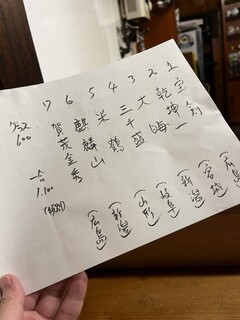 1 宝剣 (広島)
2 乾坤一 (宮城)
3 (新潟)
4 三千盛 (岐阜)
5 米鶴 (山形)
6 麒麟山 (新潟)
7 賀茂金秀 (広島)
グラス 600
一合 1,100
(税別)